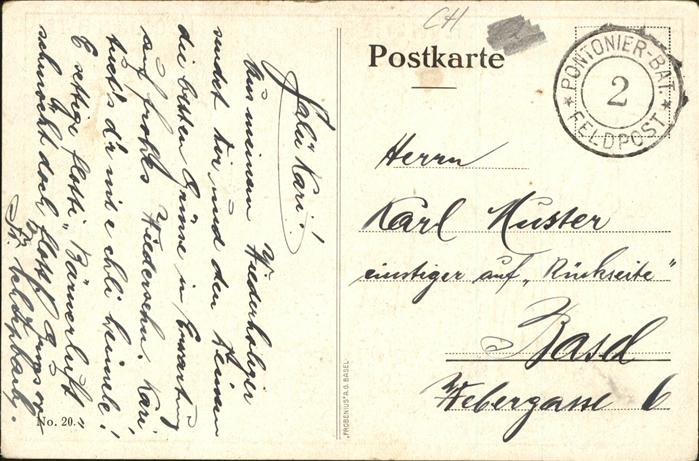 CH
Postkarte
PONTONIER-BAT.
2
* FELDPOST *
Herrn
Karl Muster
einstiger auf „Rückseite“
Basel
Webergasse 6
Salü Kari!
Aus meinem Wiederholiger
sendet dir und den Deinen
die besten Grüsse in Erwartung
auf frohes Wiedersehn. Kari
tuets d'r nit e chli heimele!
E settige flotti „Bärnerluft“
schmöckt doch
"FROBENIUS" A.G. BASEL
No. 20.